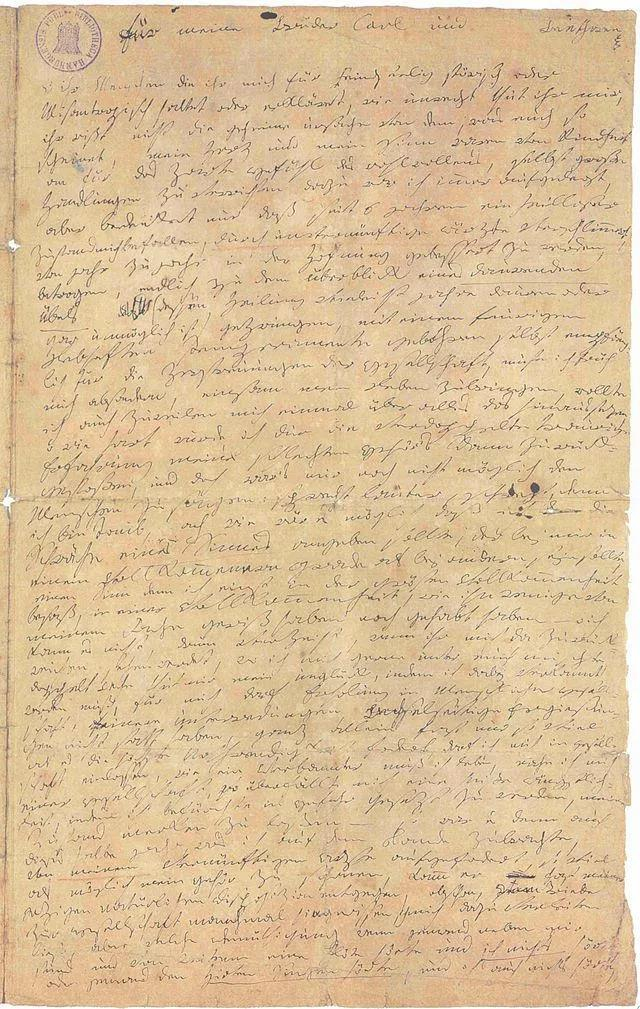 für meine Brüder Carl und Beethowen
o ihr Menschen die ihr mich für feindseelig störisch oder
Misantropisch haltet oder erkläret, wie unrecht thut ihr mir,
ihr wißt nicht die geheime urßache von dem, was euch so
scheinet, mein Herz und mein Sinn waren von Kindheit
an für das Zarte Gefühl des wohlwollens, selbst große
Handlungen zu verrichten dazu war ich immer aufgelegt,
aber bedenket nur daß seit 6 Jahren ein heilloser
Zustand mich befallen, durch unvernünftige ärzte verschlimmert,
von jahr zu jahr in der Hofnung gebessert zu werden,
betrogen, endlich zu dem überblick eines daurenden
Übels (dessen Heilung vieleicht jahre dauren oder
gar unmöglich ist) gezwungen, mit einem feurigen
Lebhaften Temperamente gebohren selbst empfäng-
lich für die Zerstreuungen der Gesellschaft, muste ich früh
mich absondern, einsam mein Leben zubringen, wollte
ich auch zuweilen mich einmal über alles das hinaussezen,
o wie hart wurde ich dur die verdoppelte traurige
Erfahrung meines schlechten Gehörs dann zurück-
gestoßen, und doch war's mir noch nicht möglich den
Menschen zu sagen: sprecht lauter, schreyt, denn
ich bin Taub, ach wie wär es möglich daß ich die
Schwäche eines Sinnes angeben sollte, der bey mir in
einem Vollkommenern grade als bey andern seyn sollte,
einen Sinn den ich einst in der grösten Vollkommenheit
besaß, in einer Vollkommenheit, wie ihn wenige von
meinem Fache gewiß haben noch gehabt haben – o ich
kann es nicht, drum verzeiht, wenn ihr mich da zurück-
weichen sehen werdet, wo ich mich gerne unter euch mischte
doppelt wehe thut mir mein unglück, indem ich dabey verkannt
werden muß, für mich darf Erholung in Menschlicher Gesell-
schaft, feinere unterredungen, wechselseitige Ergießun-
gen nicht statt haben, ganz allein fast nur so viel
als es die höchste Nothwendigkeit fodert, darf ich mich in gesell-
schaft einlassen, wie ein Verbannter muß ich leben, nahe ich mich
einer Gesellschaft, so überfällt mich eine heiße ängstlich-
keit, indem ich befürchte in Gefahr gesezt zu werden, meinen
Zustand merken zu laßen – so war es denn auch
dieses halbe jahr, was ich auf dem Lande zubrachte,
von meinem vernünftigen Arzte aufgefodert, so viel
als möglich mein Gehör zu schonen, kamm er fast meiner
jezigen natürlichen Disposizion entgegen, obschon, vom Triebe
zur Gesellschaft manchmal hingerissen, ich mich dazu verleiten
ließ, aber welche Demüthigung wenn jemand neben mir
stund und von weitem eine flöte hörte und ich nichts hörte
oder jemand den Hirten Singen hörte, und ich auch nichts hörte,